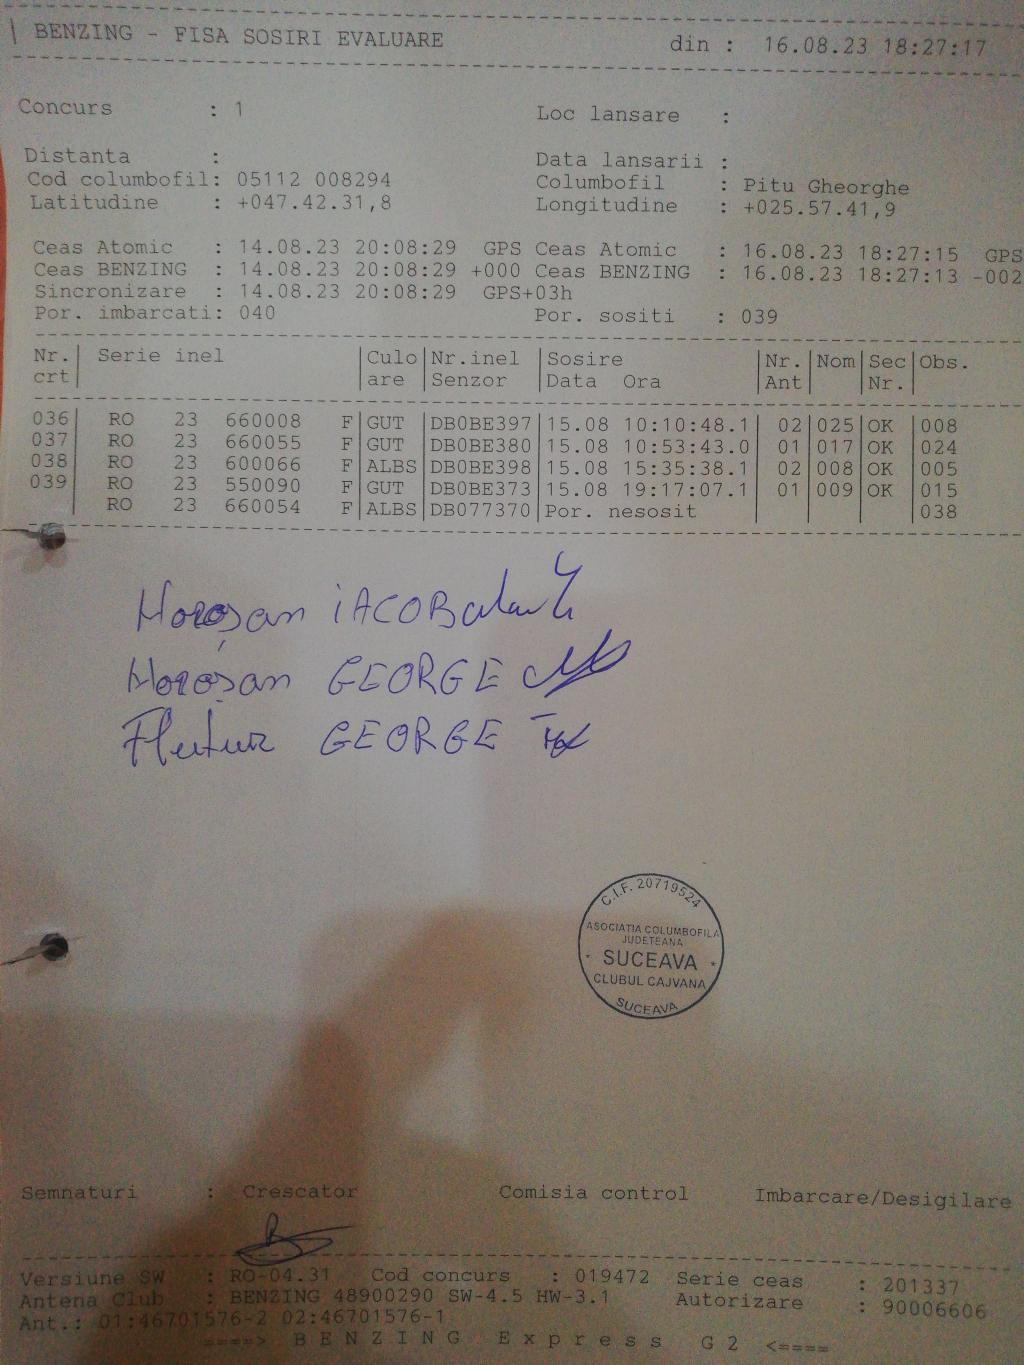 | BENZING - FISA SOSIRI EVALUARE din : 16.08.23 18:27:17
Concurs : 1 Loc lansare :
Distanta : Data lansarii :
Cod columbofil: 05112 008294 Columbofil : Pitu Gheorghe
Latitudine : +047.42.31,8 Longitudine : +025.57.41,9
Ceas Atomic : 14.08.23 20:08:29 GPS Ceas Atomic : 16.08.23 18:27:15 GPS
Ceas BENZING : 14.08.23 20:08:29 +000 Ceas BENZING : 16.08.23 18:27:13 -002
Sincronizare : 14.08.23 20:08:29 GPS+03h
Por. imbarcati: 040 Por. sositi : 039
Nr.| Serie inel |Culo|Nr.inel |Sosire |Nr.|Nom|Sec|Obs.
crt| |are |Senzor |Data Ora |Ant| |Nr.|
036| RO 23 660008 F|GUT |DB0BE397|15.08 10:10:48.1| 02|025|OK |008
037| RO 23 660055 F|GUT |DB0BE380|15.08 10:53:43.0| 01|017|OK |024
038| RO 23 600066 F|ALBS|DB0BE398|15.08 15:35:38.1| 02|008|OK |005
039| RO 23 550090 F|GUT |DB0BE373|15.08 19:17:07.1| 01|009|OK |015
| RO 23 660054 F|ALBS|DB077370|Por. nesosit | | | |038
Moroșan IACOB
Moroșan GEORGE
Flutur GEORGE
C.I.F. 20719524
ASOCIATIA COLUMBOFILA
JUDETEANA
SUCEAVA
CLUBUL CAJVANA
SUCEAVA
Semnaturi : Crescator Comisia control Imbarcare/Desigilare
Versiune SW : RO-04.31 Cod concurs : 019472 Serie ceas : 201337
Antena Club : BENZING 48900290 SW-4.5 HW-3.1 Autorizare : 90006606
Ant.: 01:46701576-2 02:46701576-1
====> B E N Z I N G E x p r e s s G 2 <====